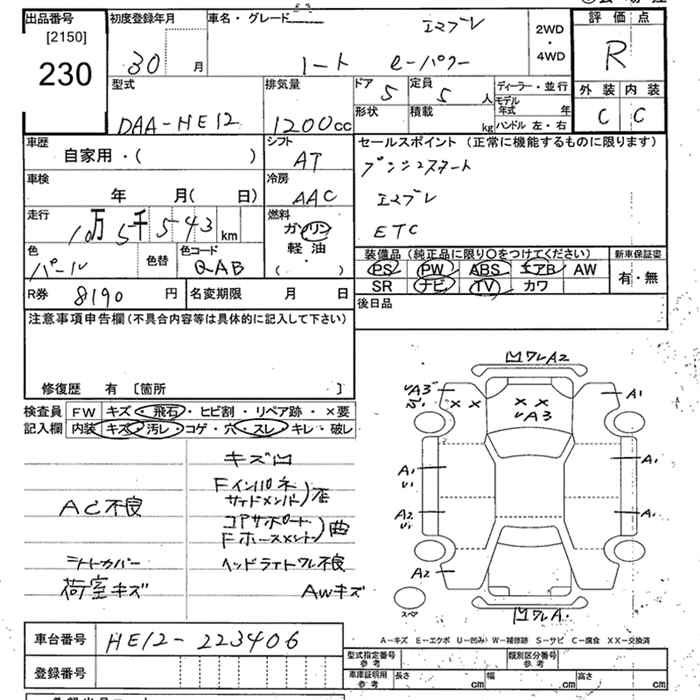 出品番号
[2150]
230
初度登録年月
30 月
車名・グレード
エマブレ
ノート e-パワー
2WD
・
4WD
評価点
R
外装 内装
C C
型式
DAA-HE12
排気量
1200cc
ドア
5
定員
5 人
形状
積載
kg
ディーラー・並行
モデル
年式 年
ハンドル 左・右
車歴
自家用・( )
シフト
AT
車検
年 月( 日)
冷房
AAC
走行
10万5千543 km
燃料
ガソリン
軽油
・
( )
色
パール
色替
色コード
QAB
R券 8190 円
名変期限 月 日
セールスポイント (正常に機能するものに限ります)
プッシュスタート
エマブレ
ETC
装備品 (純正品に限り○をつけてください)
PS PW ABS エアB AW
SR ナビ TV カワ
新車保証書
有・無
後日品
注意事項申告欄(不具合内容等は具体的に記入して下さい)
修復歴 有 〔箇所 〕
検査員
記入欄
FW キズ・飛石・ヒビ割・リペア跡・×要
内装 キズ・汚レ・コゲ・穴・スレ・キレ・破レ
キズ凹
AC不良
Fインパネ
サイドメンバー
コアサポート
Fホースメント
曲
シートカバー
ヘッドライトワレ不良
荷室キズ
AWキズ
凹ワレA2
A3
××
××
A3
A1
A1
U1
A1
A2
U1
A1
A2
スペア
凹ワレA
A-キズ E-エクボ U-凹み W-補修跡 S-サビ C-腐食 XX-交換済
車台番号 HE12-223406
登録番号
型式指定番号
参考
類別区分番号
参考
車庫証明用
参考
長さ cm
幅 cm
高さ cm